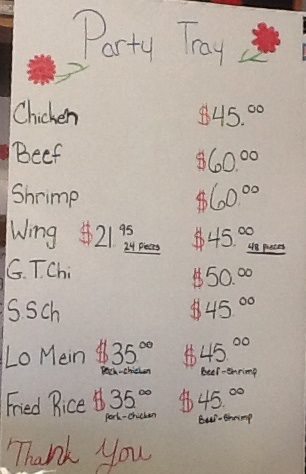 Party Tray
Chicken $45.00
Beef $60.00
Shrimp $60.00
Wing $21.95 24 pieces $45.00 48 pieces
G.T.Chi $50.00
S.SCh $45.00
Lo Mein $35.00 $45.00
Pork-chicken Beef-Shrimp
Fried Rice $35.00 $45.00
pork-chicken Beef-Shrimp
Thank You